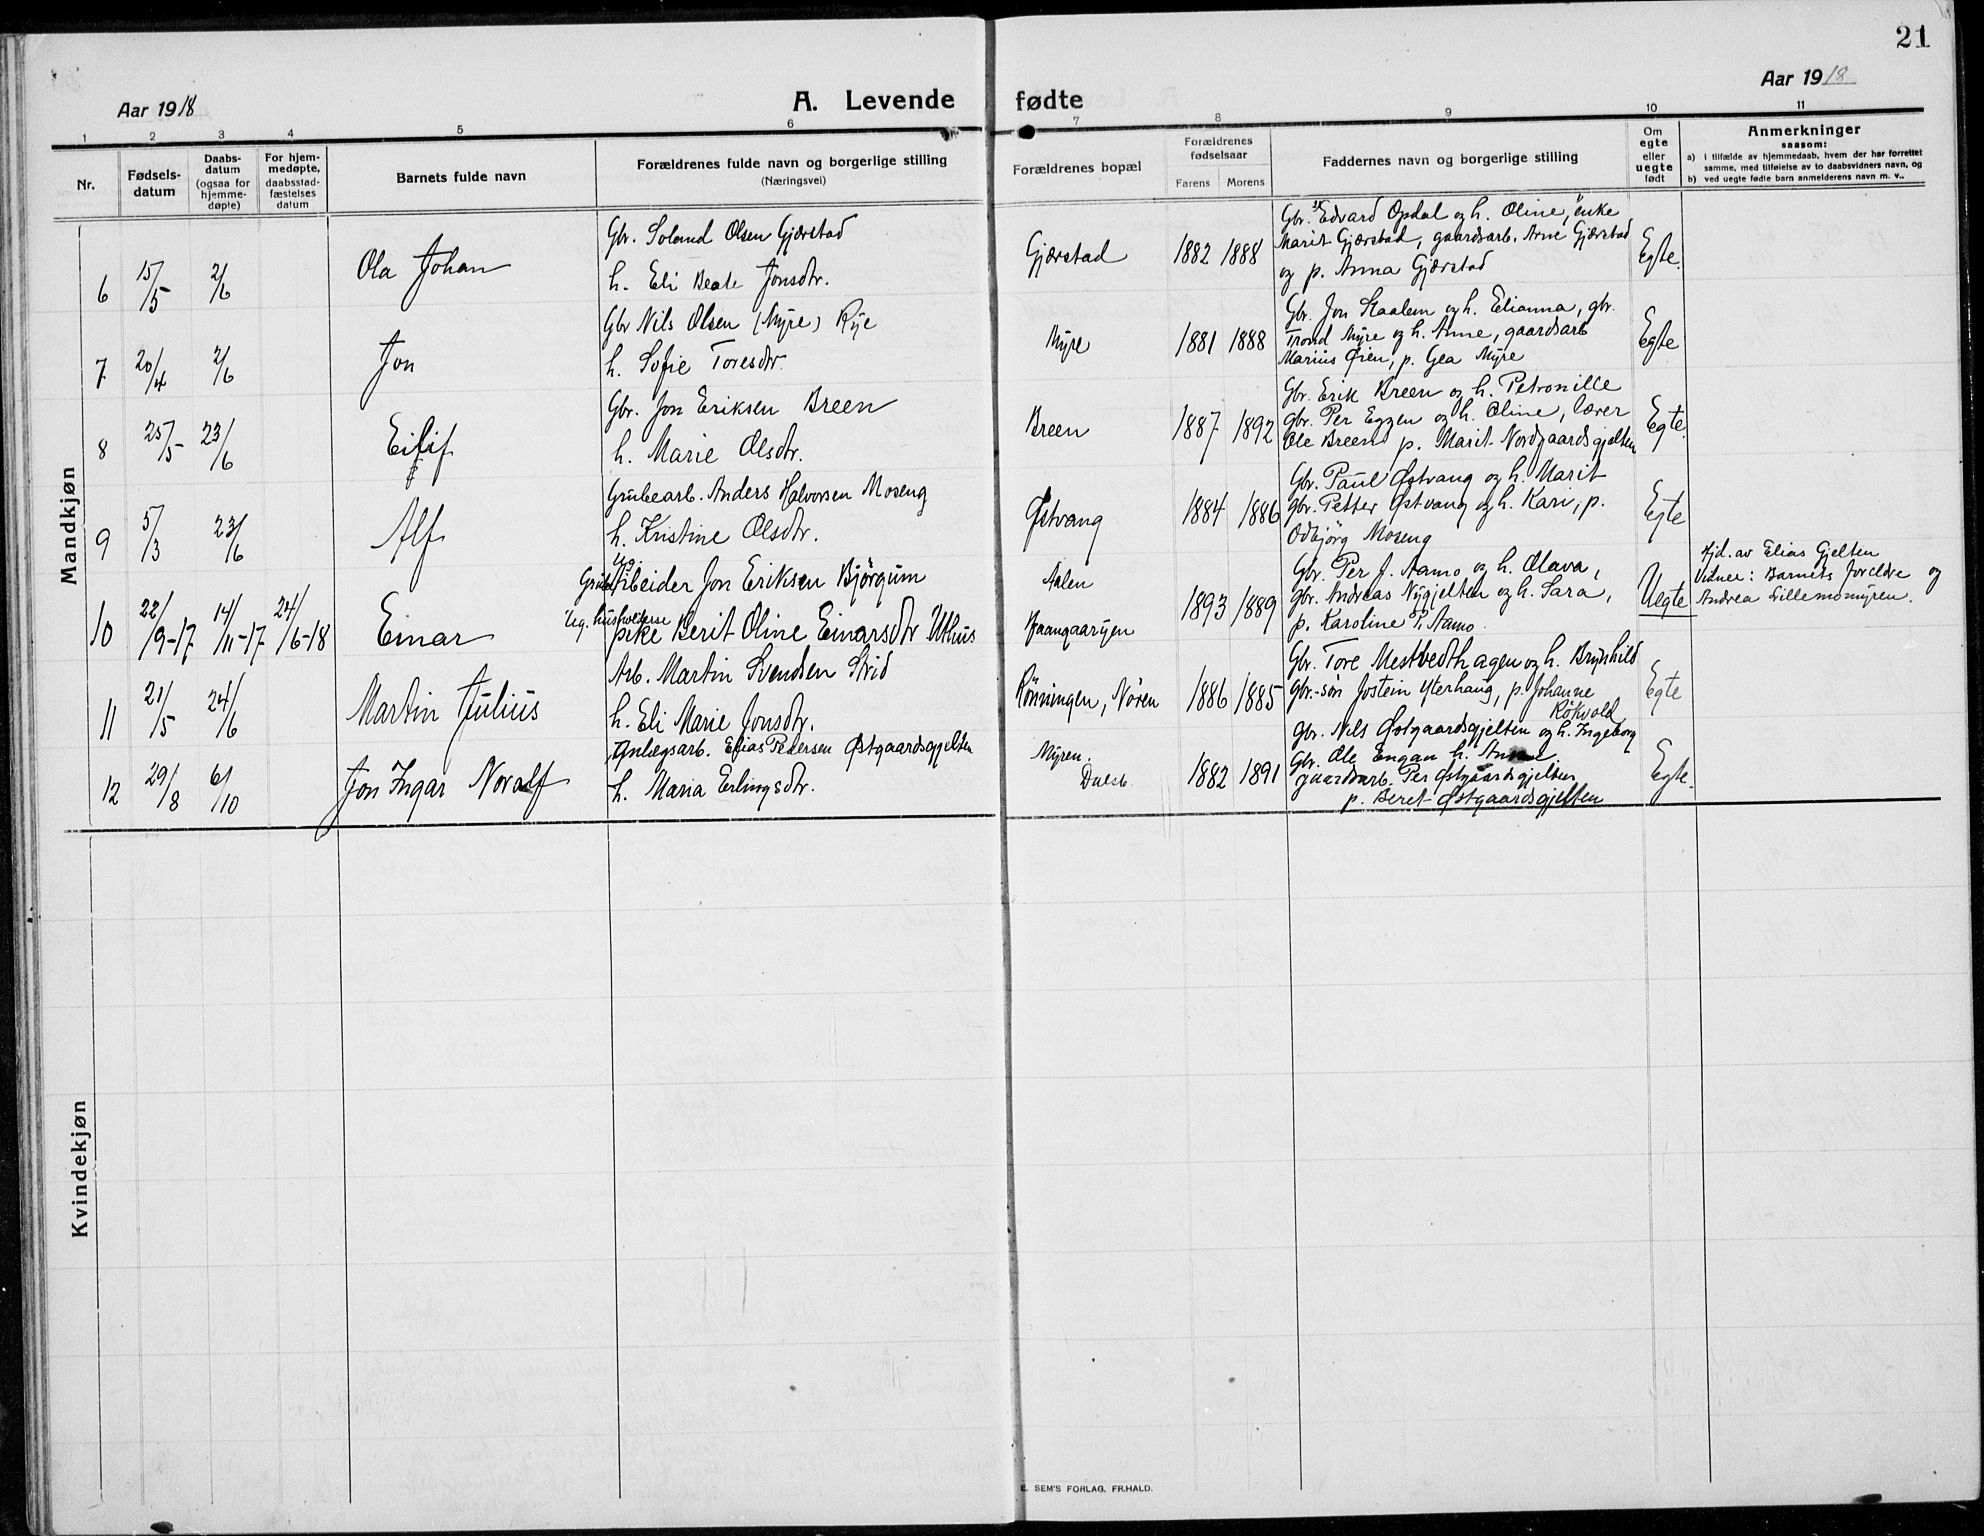 21
Aar 1918
A. Levende fødte
Aar 1918
1 2 3 4 5 6 7 8 9 10 11
Nr.
Fødsels-
datum
Daabs-
datum
(ogsaa for
hjemme-
døpte)
For hjem-
medøpte,
daabsstad-
fæstelses
datum
Barnets fulde navn
Forældrenes fulde navn og borgerlige stilling
(Næringsvei)
Forældrenes bopæl
Forældrenes
fødselsaar
Farens Morens
Faddernes navn og borgerlige stilling
Om
egte
eller
uegte
født
Anmerkninger
saasom:
a) i tilfælde av hjemmedaab, hvem der har forrettet
samme, med tilføielse av to daabsvidners navn, og
b) ved uegte fødte barn anmelderens navn m. v..
Mandkjøn
6 15/5 2/6 Ola Johan
Gbr. Olsen Gjærstad
h. Eli Beate Jonsdtr.
Gjærstad 1882 1888
Gbr. Edvard Opdal og h. Oline, enke
Marit Gjærstad, gaardsarb. Arne Gjærstad
og p. Anna Gjærstad
Egte.
7 20/4 2/6 Jon
Gbr Nils Olsen (Myre) Rye
h. Sofie Toresdtr.
Myre 1881 1888
Gbr. Jon Kaalen og h. Elianna, gbr.
Trond Myre og h. Anne, gaardsarb
Marius Øien, p. Gea Myre
Egte
8 25/5 23/6 Eilif
Gbr. Jon Eriksen Breen
h. Marie Olsdtr.
Breen 1887 1892
Gbr. Erik Breen og h. Petronille
gbr. Per Eggen og h. Oline, lærer
Ole Breen p. Marit Nordgaardsgjelten
Egte.
9 5/3 23/6 Alf
Grubearb. Anders Halvorsen Moseng
h. Kristine Olsdtr.
Østvang 1884 1886
Gbr. Paul Østvang og h. Marit
gbr. Petter Østvang og h. Kari, p.
Odbjörg Moseng
Egte
10 22/9-17 14/11-17 24/6-18 Einar
Ug.
Grubearbeider Jon Eriksen Björgum
Ug. husholderske
pike Berit Oline Einarsdtr Uthus
Aalen
Haangaaryen
1893 1889
Gbr. Per J. Aamo og h. Olava,
gbr. Andreas Nygjelten og h. Sara,
p. Karoline P. Aamo.
Uegte
Hjd. av Elias Gjelten
Vidner: Barnets foreldre og
Andrea Lillemomyren.
11 21/5 24/6 Martin Julius
Arb. Martin Svendsen Strid
h. Eli Marie Jonsdtr.
Rönningen, Nören 1886 1885
Gbr. Tore Mestvedthagen og h. Brynhild
Gbr.-søn Jostein Yterhaug, p. Johanne
Rökvold
Egte
12 29/8 6/10 Jon Ingar Noralf
Anlægsarb. Elias Pedersen Østgaardsgjelten
h. Maria Erlingsdtr.
Myren.
Dalsb. 1882 1891
Gbr. Nils Østgaardsgjelten og h. Ingeborg
Gbr. Ole Engan h.
gaardsarb. Per Østgaardsgjelten
p. Beret Østgaardsgjelten
Egte.
Kvindekjøn
E. SEM'S FORLAG, FR.HALD.